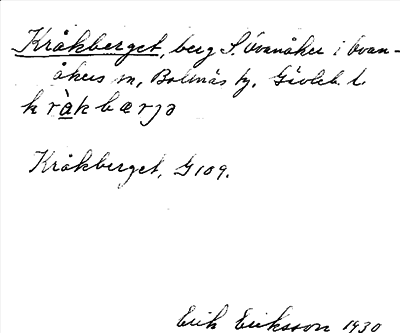 Kråkberget, berg S. Ovanåker i Ovan-
åkers sn, Bollnäs tg, Gävleb. l.
kràkbærjə
Kråkberget, G 109.
Erik Eriksson 1930